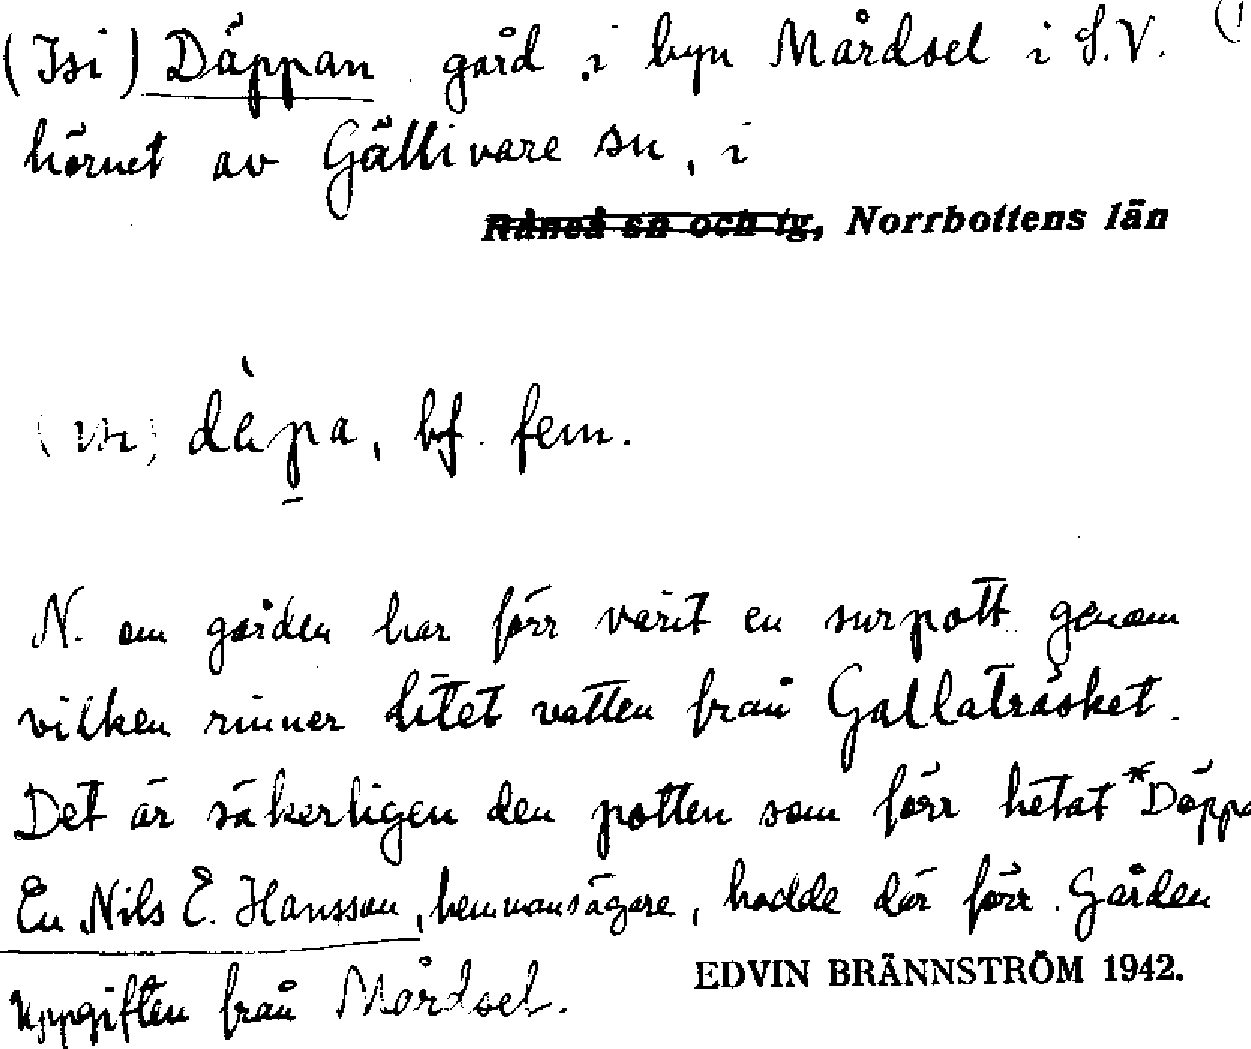 (Isi) Däppan gård i byn Mårdsel i S.V.
hörnet av Gällivare sn, i
Råneå sn och tg, Norrbottens län
däpa, bf. fem.
N. om gården har förr varit en surpott genom
vilken rinner litet vatten från Gallaträsket.
Det är säkerligen den potten som förr hetat *Däppa
En Nils E. Hansson, hemmansägare, hadde där förr. Gården
Uppgiften från Mårdsel.
EDVIN BRÄNNSTRÖM 1942.